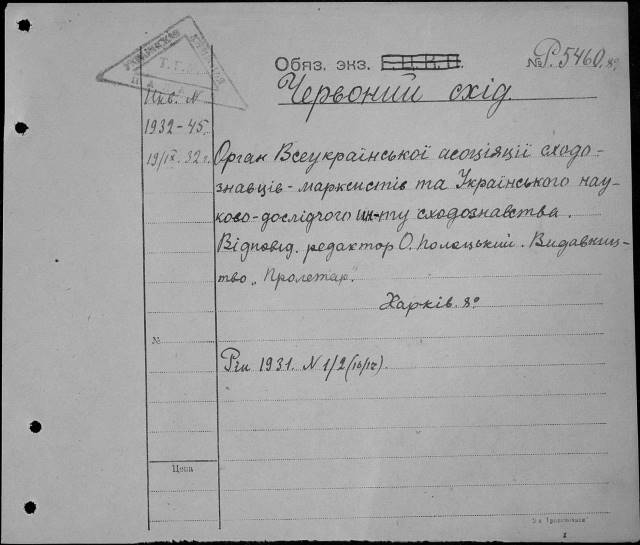 УКРАЇНСКАЯ
Обяз. экз. Г.Ц.К.П. № Р. 5460. 8º
Червоний схід.
Инв. N
1932-45.
19/IX. 32 г.
Орган Всеукраїнської асоціяції сходо-
знавців-марксистів та Українського нау-
ково-дослідчого ин-ту сходознавства.
Відповід. редактор О. Полоцький. Видавниц-
тво „Пролетар".
Харків. 8º
№
1931. N 1/2 (16/17).
Цена